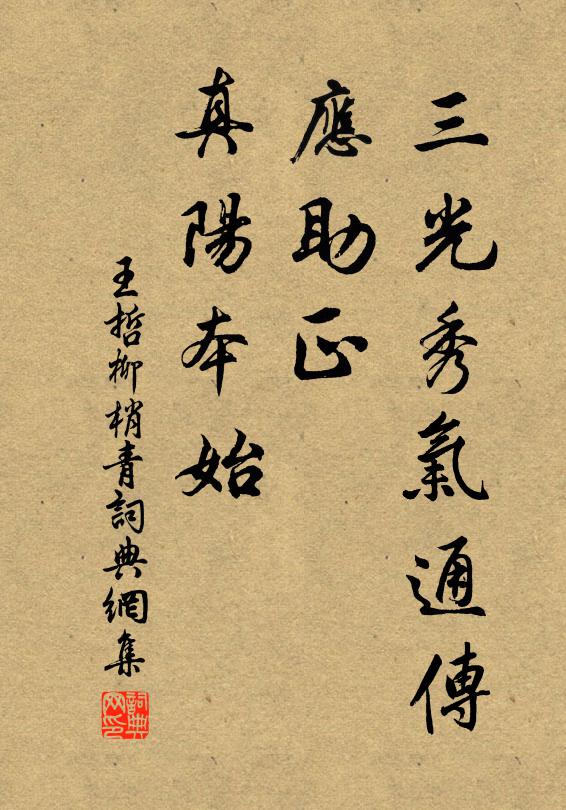 三光秀氣通傳
應助正
真陽本始
王哲柳梢青詞典網集
詞典网印